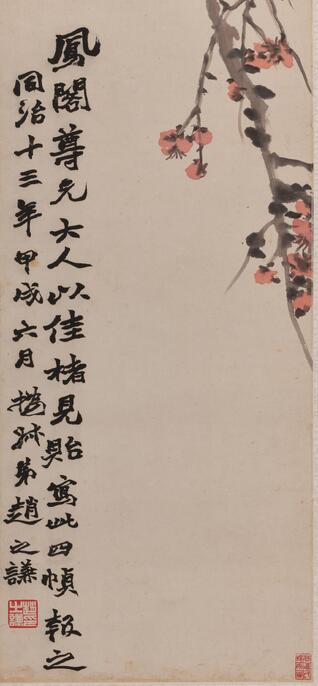 鳳閣尊兄大人以佳楮見貽寫此四幀報之
同治十三年甲戌六月撝叔弟趙之謙